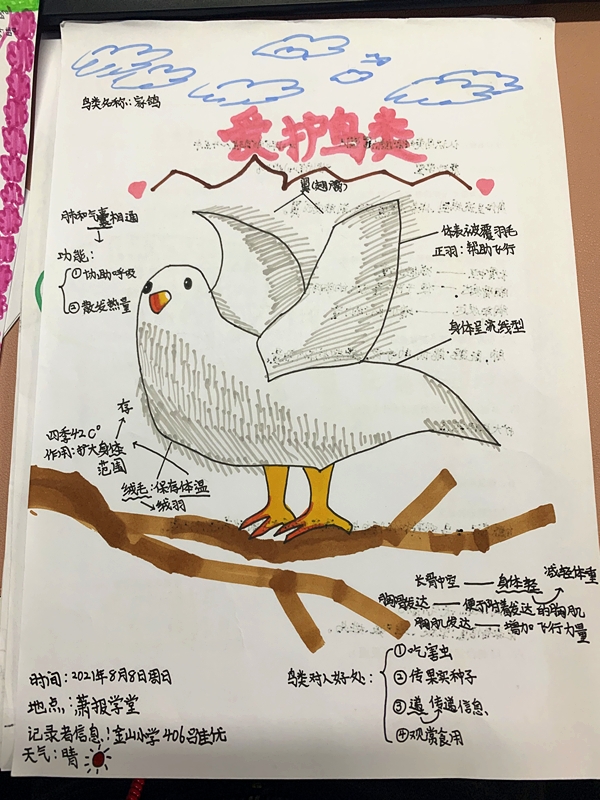 鸟类名称:家鸽
爱护鸟类
翼(翅膀)
肺和气囊相通
功能:
①协助呼吸
②散发热量
体表被覆羽毛
正羽:帮助飞行
身体呈流线型
存
四季42C°
作用:扩大身体
范围
绒毛:保存体温
绒羽
长骨中空——身体轻
减轻体重
胸骨发达——便于附着发达的胸肌
胸肌发达——增加飞行力量
鸟类对人好处:
①吃害虫
②传果实种子
③道 传道信息
④观赏食用
时间:2021年8月8日周日
地点:萧报学堂
记录者信息:金山小学406吕佳优
天气:晴